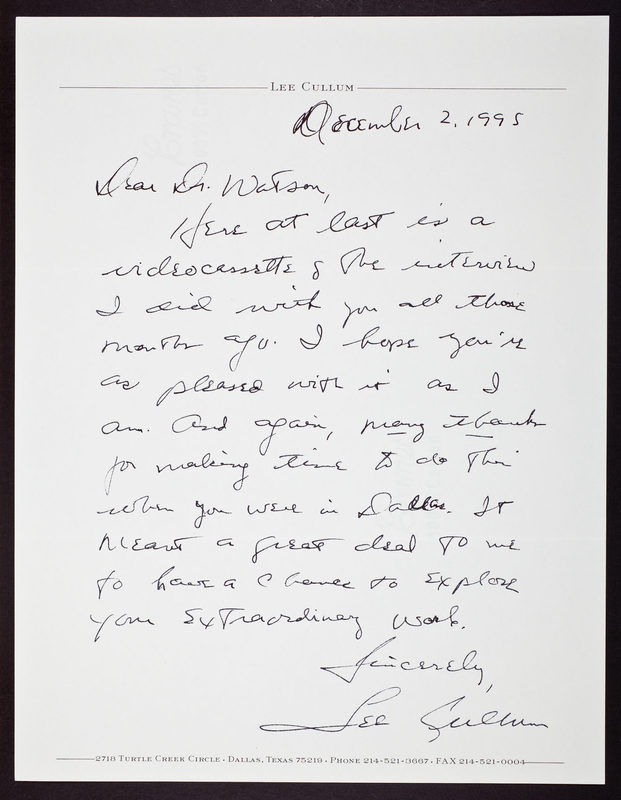 LEE CULLUM
December 2, 1995
Dear Dr. Watson,
Here at last is a
videocassette of the interview
I did with you all those
months ago. I hope you're
as pleased with it as I
am. And again, many thanks
for making time to do this
when you were in Dallas. It
meant a great deal to me
to have a chance to explore
your extraordinary work.
Sincerely,
Lee Cullum
2718 TURTLE CREEK CIRCLE · DALLAS, TEXAS 75219 · PHONE 214-521-3667 · FAX 214-521-0004